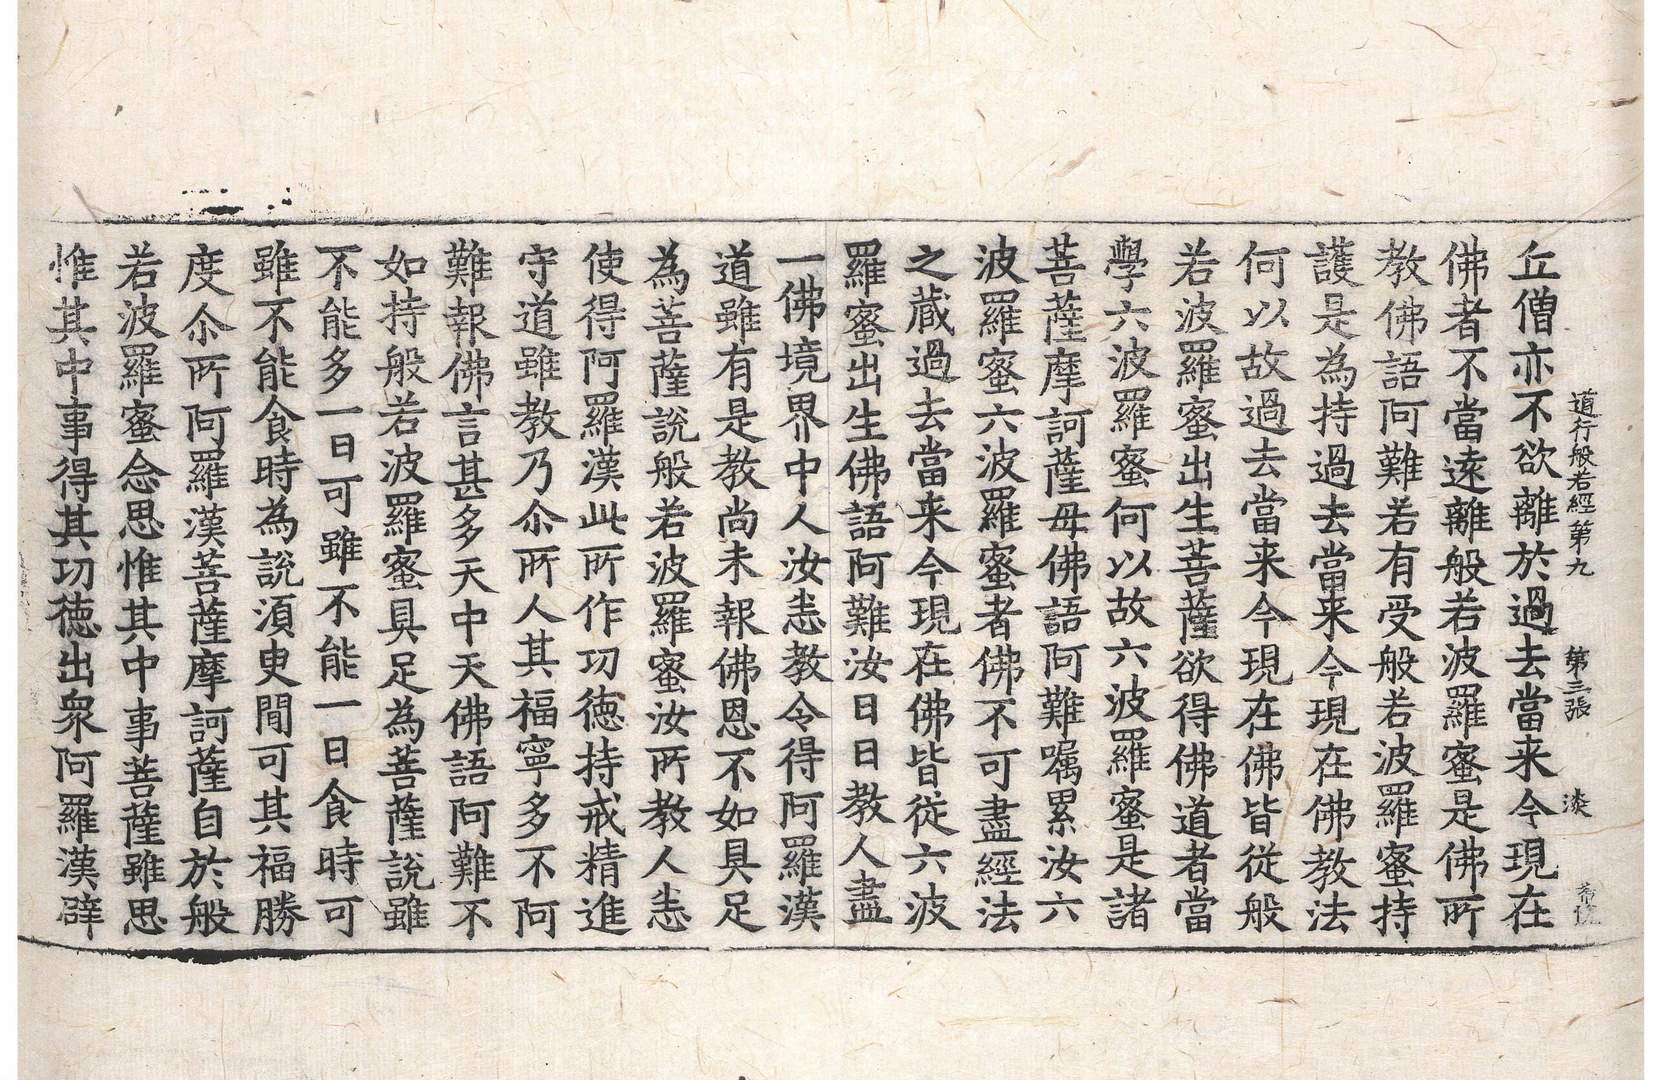 道行般若經第九　第三張　淡
丘僧亦不欲離於過去當来今現在
佛者不當遠離般若波羅蜜是佛所
教佛語阿難若有受般若波羅蜜持
護是為持過去當来今現在佛教法
何以故過去當来今現在佛皆從般
若波羅蜜出生菩薩欲得佛道者當
學六波羅蜜何以故六波羅蜜是諸
菩薩摩訶薩母佛語阿難嘱累汝六
波羅蜜六波羅蜜者佛不可盡經法
之藏過去當来今現在佛皆從六波
羅蜜出生佛語阿難汝日日教人盡
一佛境界中人汝恚教令得阿羅漢
道雖有是教尚未報佛恩不如具足
為菩薩說般若波羅蜜汝所教人恚
使得阿羅漢此所作功德持戒精進
守道雖教乃尒所人其福寧多不阿
難報佛言甚多天中天佛語阿難不
如持般若波羅蜜具足為菩薩說雖
不能多一日可雖不能一日食時可
雖不能食時為說須臾閒可其福勝
度尒所阿羅漢菩薩摩訶薩自於般
若波羅蜜念思惟其中事菩薩雖思
惟其中事得其功德出衆阿羅漢辟